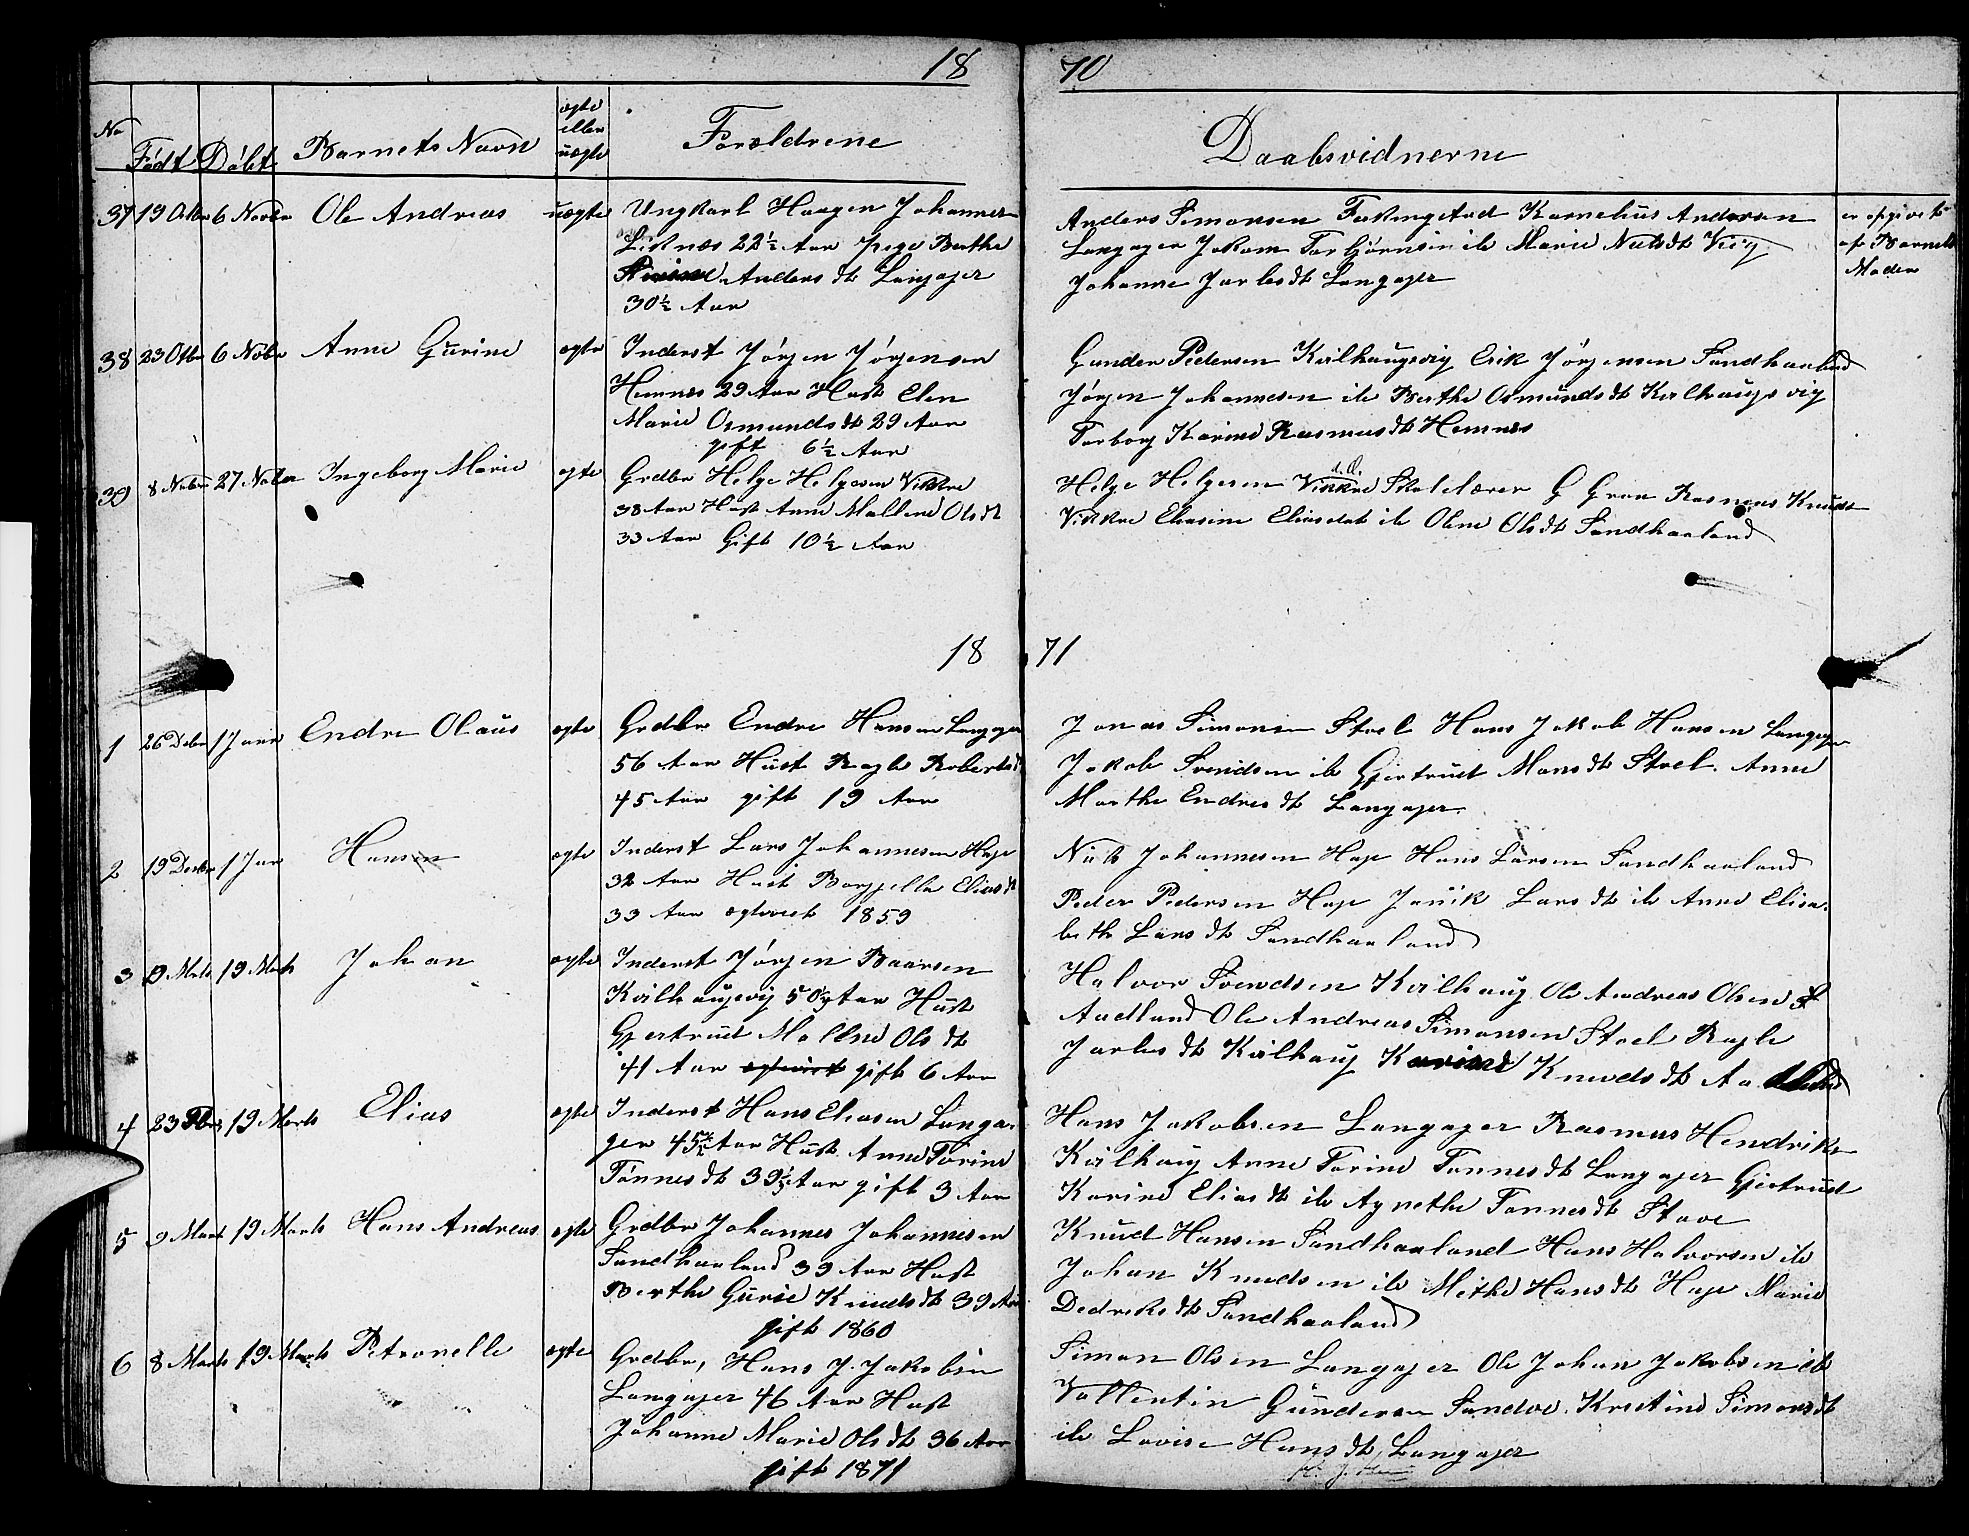 18 70
No Født Døbt Barnets Navn ægte eller uægte Forældrene Daabsvidnerne
37 19 Octbr 6 Novbr Ole Andreas uægte Ungkarl Haagen Johannes
Liknæs 22½ Aar pige Berthe
Anders dt Langager
30½ Aar
Anders Simonsen Ferkingstad Kornelius Andersen
Langager Jokom Torbjørnsen ib Marie Niels dt Vig
Johanne Jarles dt Langager
er opgivet
af Barnets
Moder
38 23 Otbr 6 Nobr Anne Gurine ægte Inderst Jørgen Jørgensen
Hemnes 29 Aar Hust Elen
Marie Osmunds dt 29 Aar
gift 6½ Aar
Gunder Pedersen Kvilhaugsvig Erik Jørgensen Sandhaaland
Jørgen Johannesen ib Berthe Osmunds dt Kvilhaugsvig
Torborg Karine Rasmus dt Hemnes
39 8 Nobr 27 Nober Ingeborg Marie ægte Grdbr Helge Helgesen Vikre
38 Aar Hust Anne Mallene Ols dt
33 Aar Gift 10½ Aar
Helge Helgesen Vikre Skolelærer G Gron Rasmus Knuds
Vikre Eliasdat ib Oline Ols dt Sandhaaland
18 71
1 26 Debr 1 Janr Endre Olaus ægte Grdbr Endre Hansen Langager
56 Aar Hust Ragle Roberts dt
45 Aar gift 19 Aar
Jonas Simonsen Stoel Hans Jakob Hansen Langager
Jakob Svendsen ib Gjertrud Mons dt Stoel. Anne
Marthe Endres dt Langager
2 19 Desbr 1 Jan Hansen ægte Inderst Lars Johannesen Hage
32 Aar Hust Borgelle Elias dt
33 Aar ægteviet 1859
Niels Johannesen Hage Hans Larsen Sandhaaland
Peder Pedersen Hage Lars dt ib Anne Elisa-
beth Lars dt Sandhaaland
3 9 Marts 19 Marts Johan ægte Inderst Jørgen Baarsen
Kvilhaugsvig 50½ Aar Hust
Gjertrud Mallene Ols dt
41 Aar ægteviet gift 6 Aar
Halvor Svendsen Kvilhaug Ole Andreas Olsen
Aadland Ole Andreas Simonsen Stoel Ragle
Jarles dt Kvilhaug Karine Knuds dt Aadland
4 23 Fbr 19 Marts Elias ægte Inderst Hans Eliasen Langa-
ger 45½ Aar Hust Anne Torine
Tønnes dt 39½ Aar gift 3 Aar
Hans Jakobsen Langager Rasmus Hendriks
Kvilhaug Anne Torine Tonnes dt Langager Gjertrud
Karine Elias dt ib Agnethe Tonnes dt Stave
5 9 Mart 19 Marts Hans Andreas ægte Grdbr Johannes Johannesen
Sandhaaland 39 Aar Hust
Berthe Gurie Knuds dt 39 Aar
gift 1860
Knud Hansen Sandhaaland Hans Halvorsen ib
Johan Knudsen ib Methe Hans dt Hage Marie
Dedreks dt Sandhaaland
6 8 Marts 19 Marts Petronelle ægte Grdbr, Hans J. Jakobsen
Langager 46 Aar Hust
Johanne Marie Ols dt 36 Aar
gift 1871
Simon Olsen Langager Ole Johan Jakobsen ib
Vallentin Gundersen Sandve. Kristine Simons dt
ib Lovise Hans dt Langager